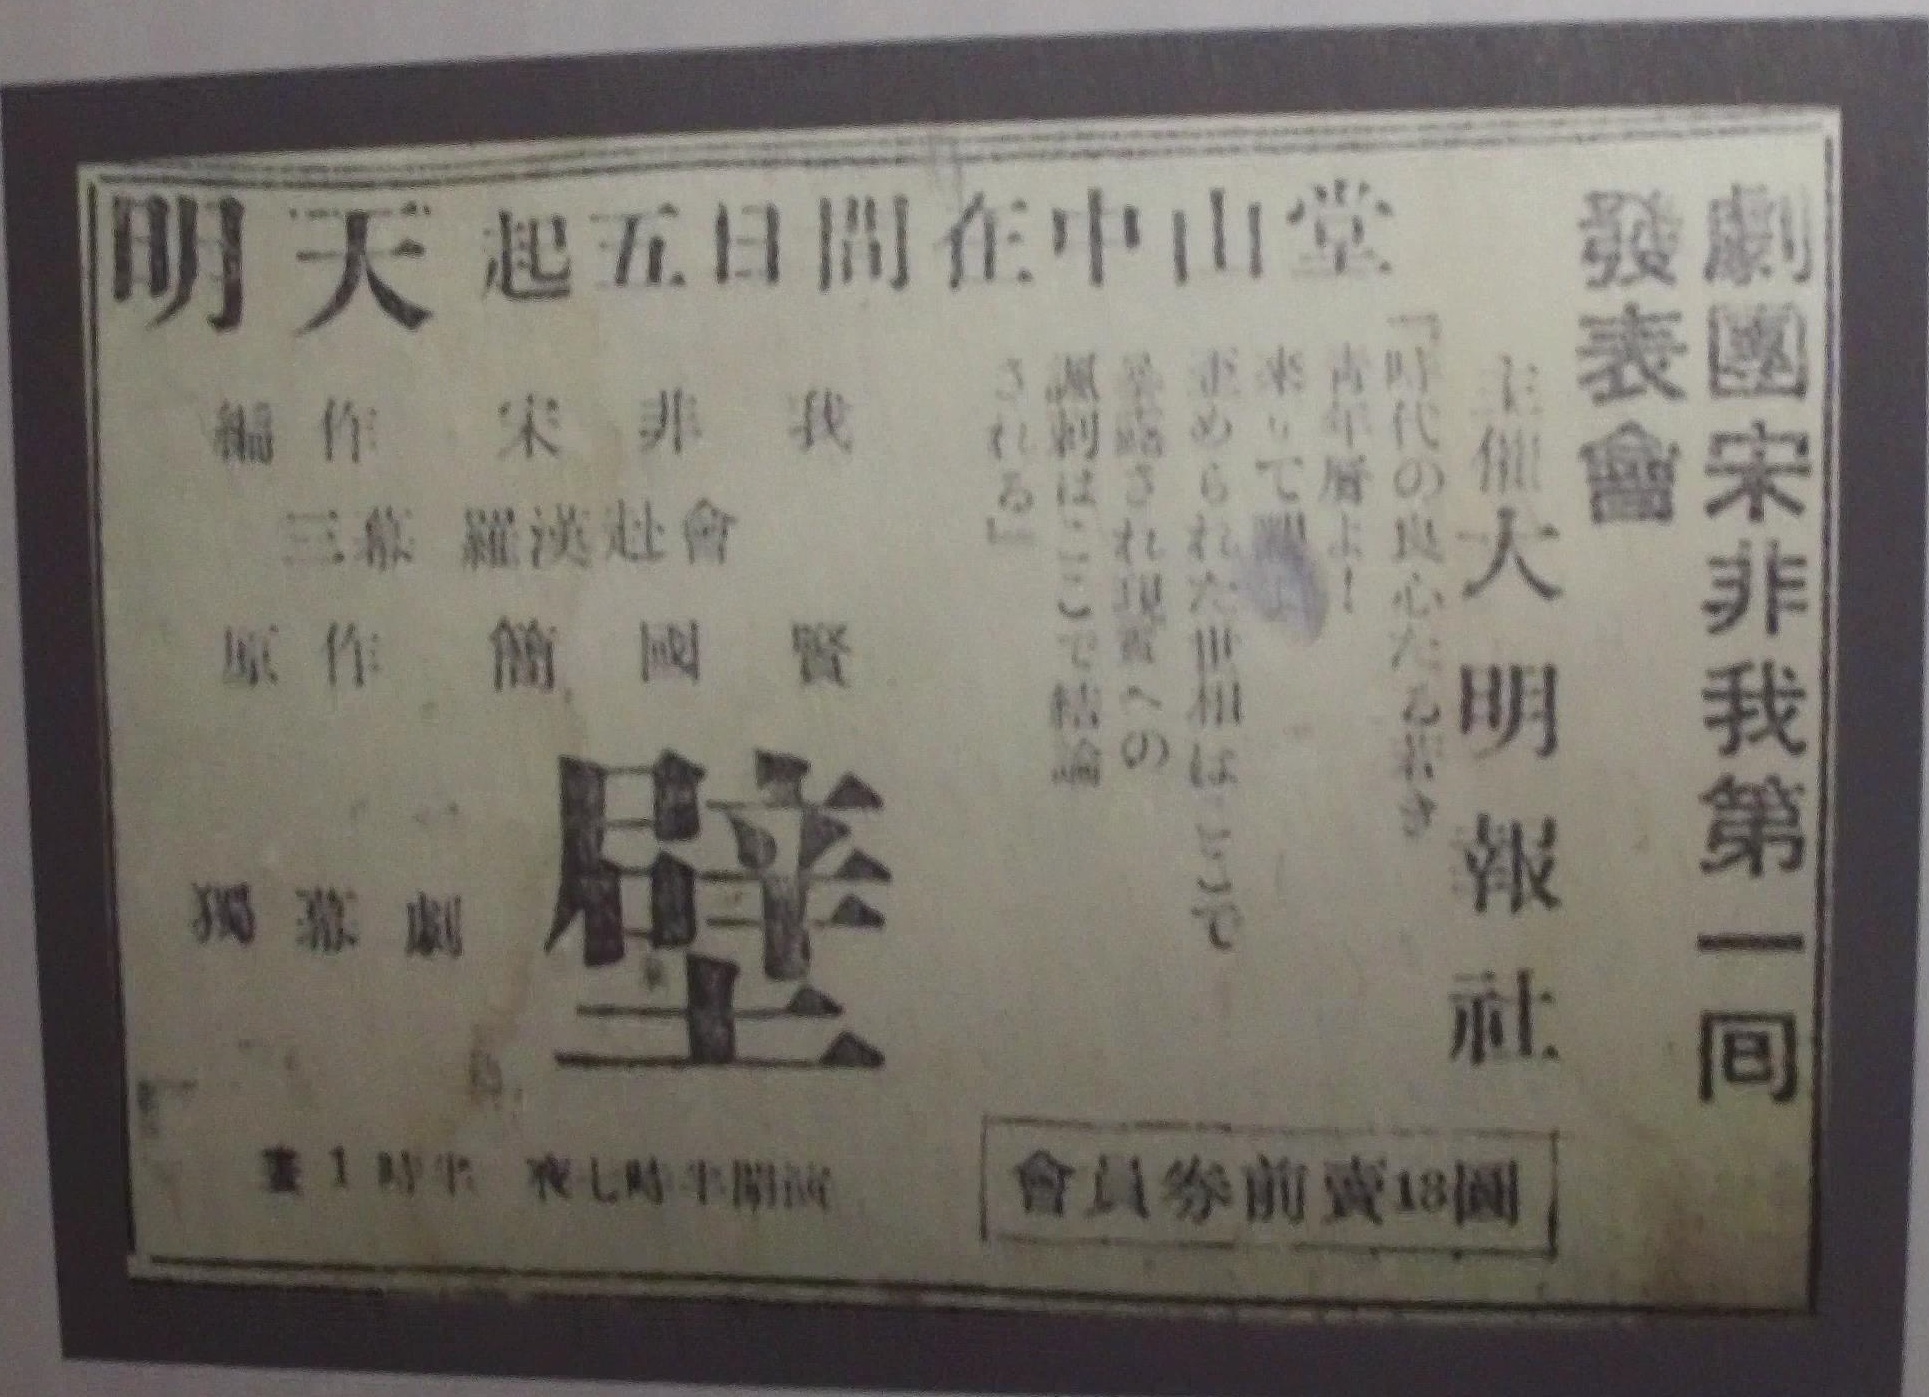 劇團宋非我第一回
發表會
主催 大明報社
『時代の良心たる若き
青年層よ!
来りて
歪められた世相はここで
暴露され現實への
諷刺はここで結論
される』
會員券前賣18圓
明天起五日間在中山堂
編作 宋非我
三幕 羅漢赴會
原作 簡國賢
獨幕劇 壁
晝1時半 夜七時半開演